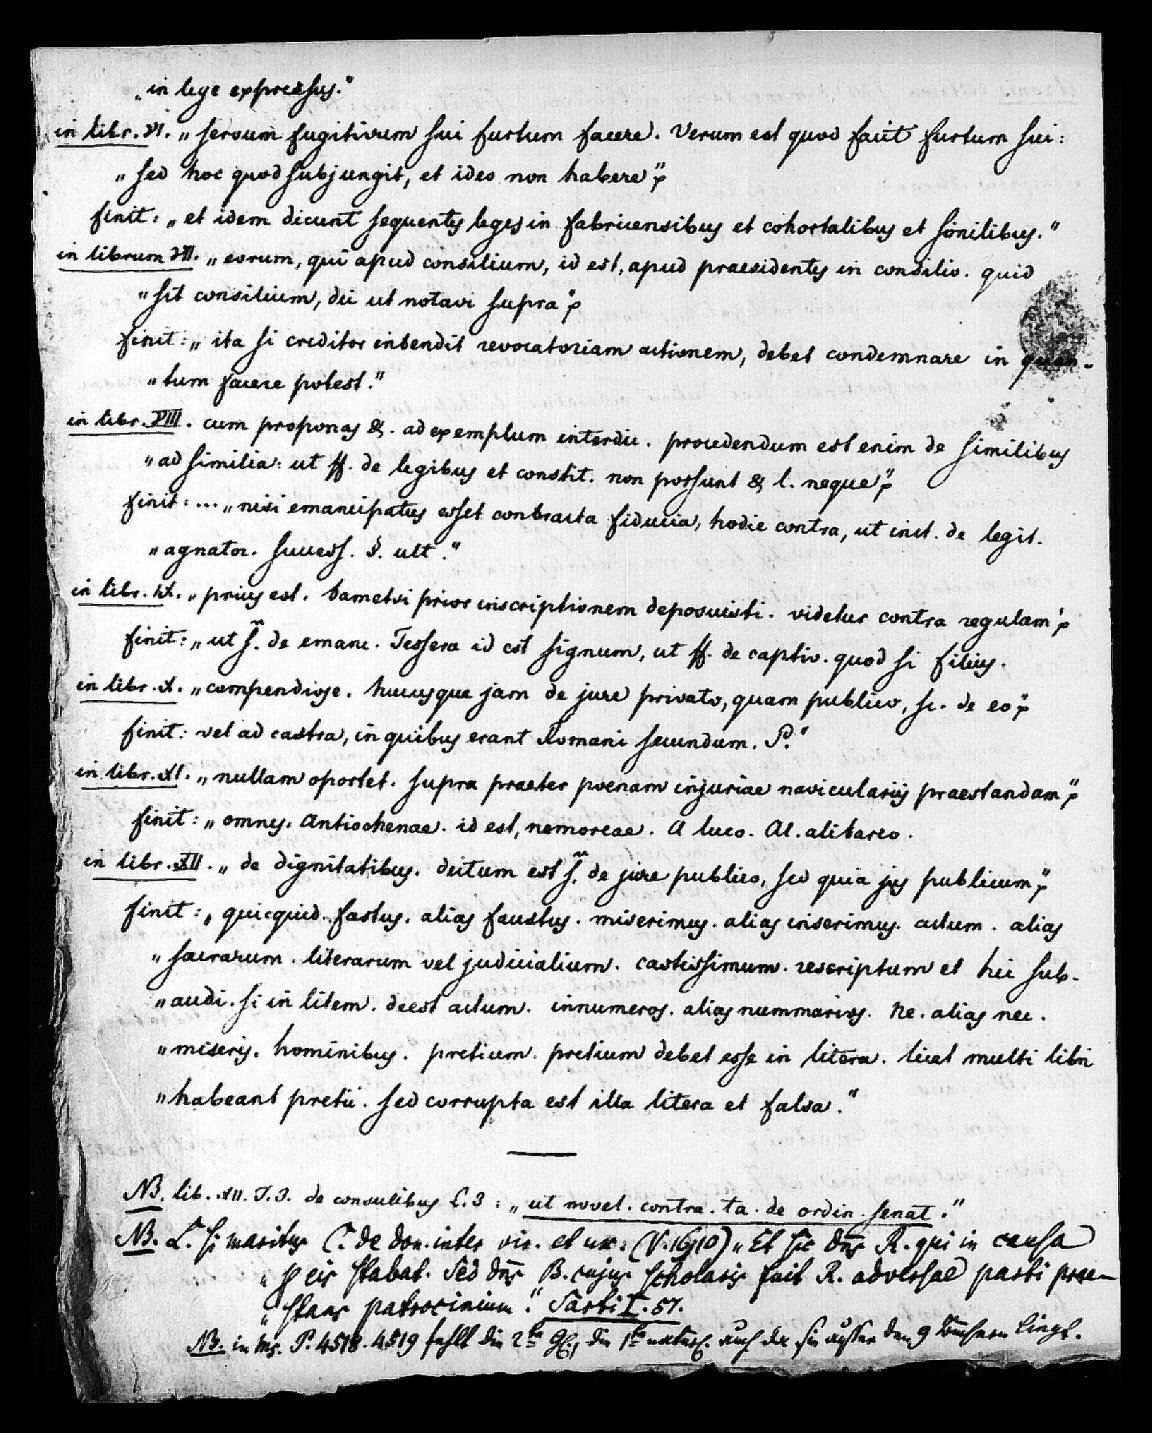 „in lege expressus.“
in libr. VI. „servum fugitivum sui furtum facere. Verum est quod facit furtum sui:
„sed hoc quod subjungit, et ideo non habere“
finit: „et idem dicunt sequentes leges in fabricensibus et cohortalibus et similibus.“
in librum VII. „eorum, qui apud consilium, id est, apud praesidentes in consilio. quid
„sit consilium, dic ut notavi supra“
finit: „ita si creditor intendit revocatoriam actionem, debet condemnare in quan-
„tum facere potest.“
in libr. VIII. cum proponas &. ad exemplum interdic. procedendum est enim de similibus
„ad similia: ut ff. de legibus et constit. non possunt & l. neque“
finit: ... „nisi emancipatus esset contracta fiducia, hodie contra, ut inst. de legit.
„agnator. success. §. ult.“
in libr. IX. „prius est. tametsi prior inscriptionem deposuisti. videtur contra regulam“
finit: „ut s. de emanc. Tessera id est signum, ut ff. de captiv. quod si filius.
in libr. X. „compendiose. hucusque jam de jure privato, quam publico, sc. de eo“
finit: vel ad castra, in quibus erant Romani secundum. P.“
in libr. XI. „nullam oportet. supra praeter poenam injuriae naviculariis praestandam“
finit: „omnes. Antiochenae. id est, nemoreae. A luco. Al. alitarco.
in libr. XII. „de dignitatibus. dictum est s. de jure publico, sed quia jus publicum“
finit: „quicquid. fastus. alias faustus. miserimus. alias inserimus. actum. alias
„sacrarum. literarum vel judicialium. castissimum. rescriptum et hic sub-
„audi. si in litem. deest actum. innumeros. alias nummarios. ne. alias nec.
„miseris. hominibus. pretium. pretium debet esse in litera. licet multi libri
„habeant pretii. sed corrupta est illa litera et falsa.“
NB. lib. XII. T. 3. de consulibus L. 3: „ut novel. contra. ta. de ordin. senat.“
NB. L. si maritus C. de don. inter vir. et ux: (V. 16, 10) „Et sic dns R. qui in causa
„p eis stabat. Sed dns B. cujus scholaris fuit R. adversae parti prae-
„stans patrocinium.“ Sarti I. 57.
NB. in ms. P. 4518. 4519 fehlt die 2te die 1te auch der sie ausser den 9